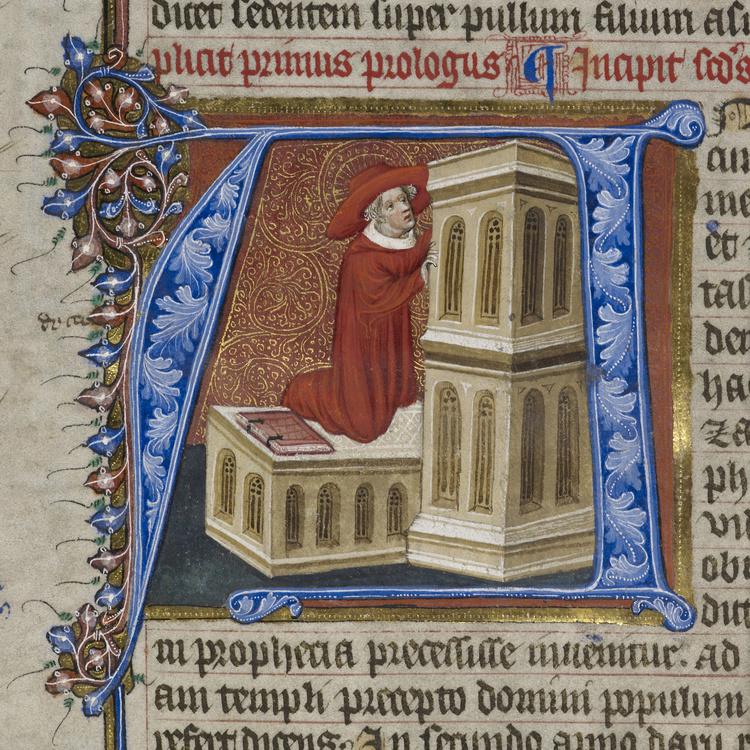 dicet sedentem super pullum filium asi
plicit primus prologus ¶ Incipit scd's
A
cur
me
et
tas
der
ha
za
ph
vi
obi
dict
in prophecia precessisse inuenitur. ad
am templi precepto domini populum
refert dicens. In secundo anno darii